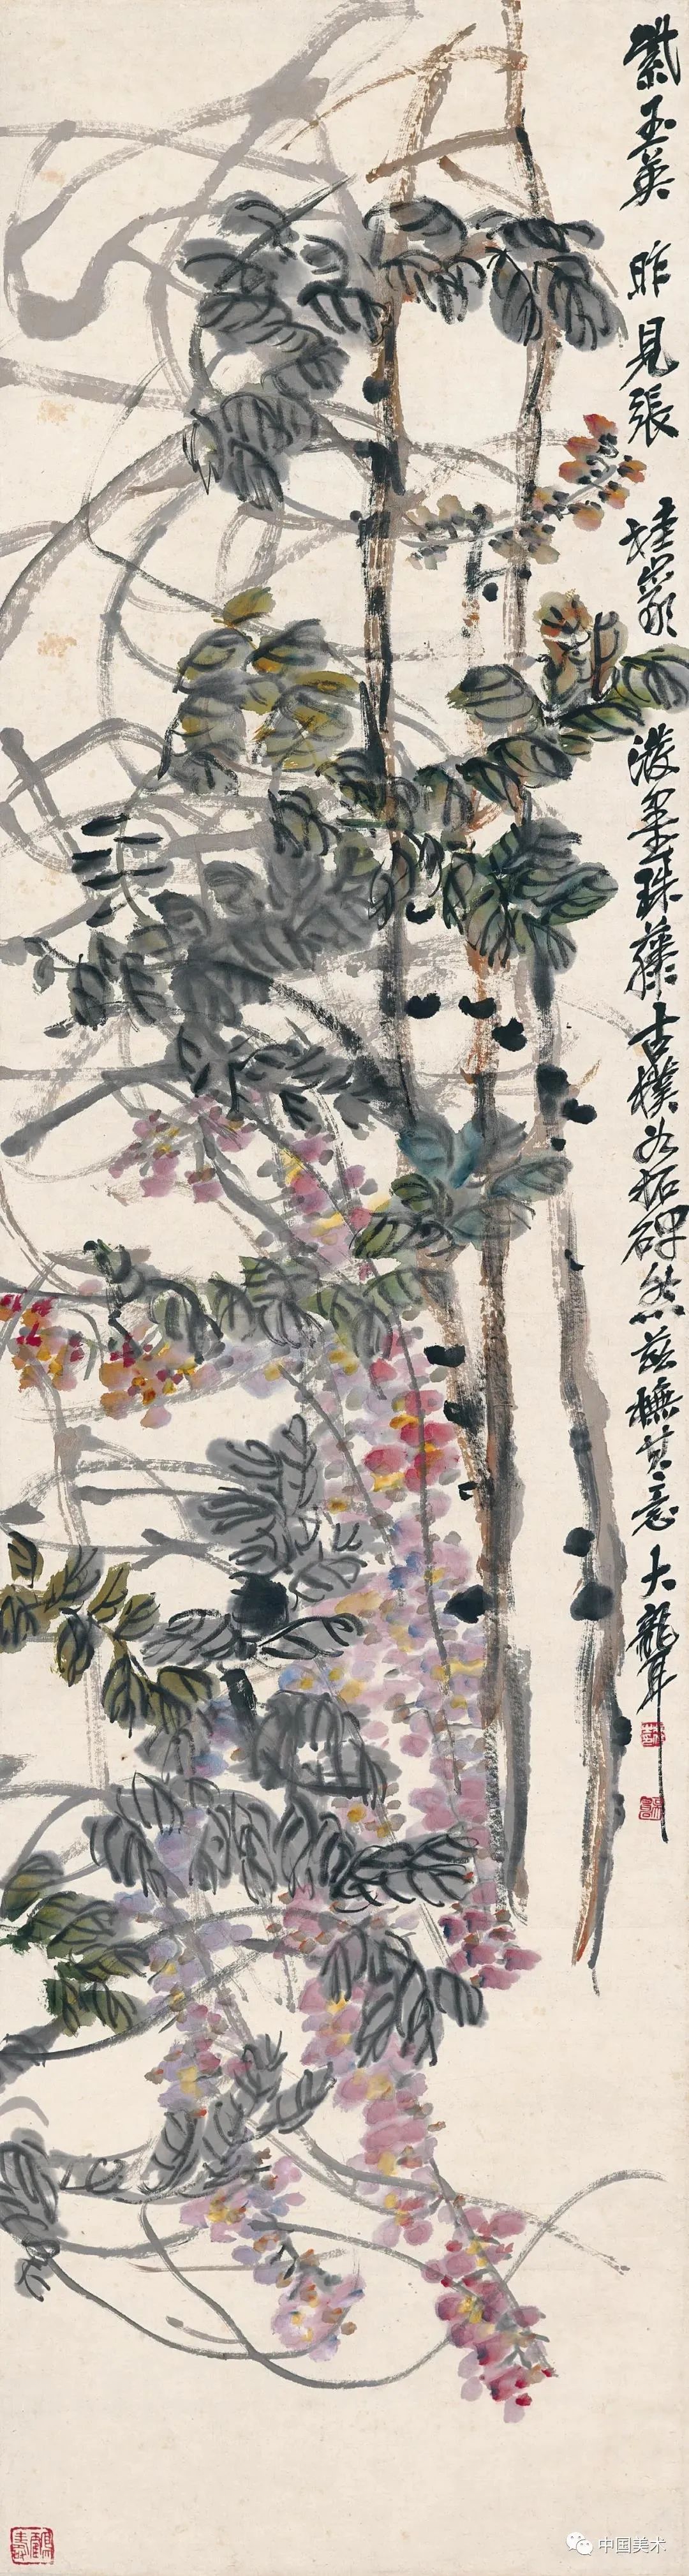 紫玉英 昨見張 孟皋潑墨珠藤古樸如拓碑然茲橅其意 大聾
中国美术